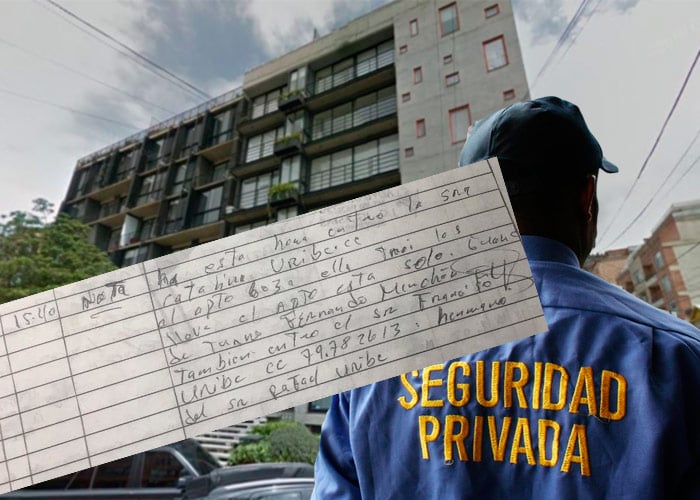 15:40 NOTA ha esta hora entro la sra
Catalina Uribe cc
al apto 603. ella trae las
llave el Apto esta solo. Guarda
de Turno Fernando Menchón
Tambien entro el sr Francisco
Uribe cc 79.782613. hermano
del sr Rafael Uribe
SEGURIDAD
PRIVADA